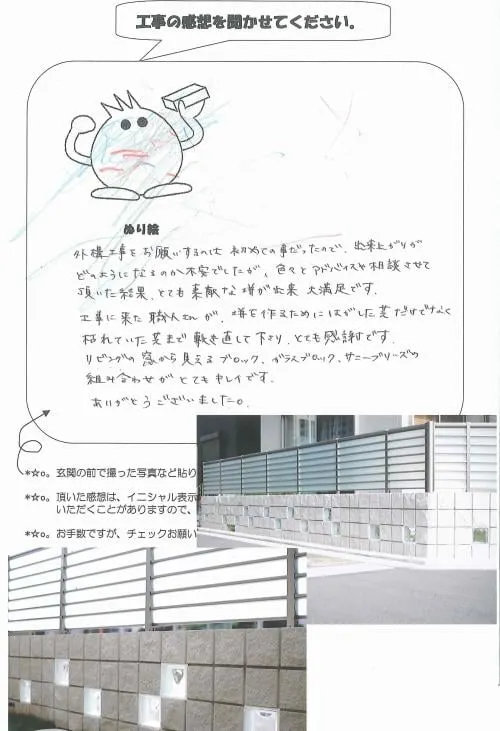 工事の感想を聞かせてください。
ぬり絵
外構工事をお願いするのは 初めての事だったので、出来上がりが
どのようになるのか不安でしたが、色々とアドバイスや相談させて
頂いた結果、とても素敵な塀が出来 大満足です。
工事に来た職人さんが、塀を作るためにはがした芝だけでなく
枯れていた芝まで敷き直して下さり、とても感謝です。
リビングの窓から見えるブロック、ガラスブロック、サニーブリーズの
組み合わせがとてもキレイです。
ありがとうございました。
*☆o。玄関の前で撮った写真など貼り
*☆o。頂いた感想は、イニシャル表示
いただくことがありますので、
*☆o。お手数ですが、チェックお願い